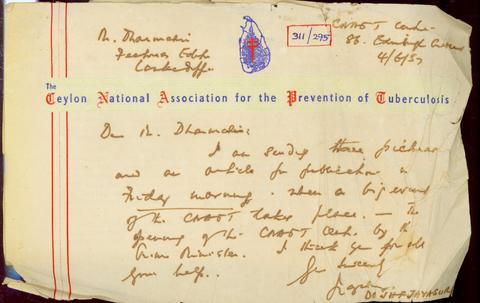 Mr. Dharmadasa
311/295
CNAPT Centre
86. Edinburgh Crescent
4/6/57
The
Ceylon National Association for the Prevention of Tuberculosis
Dear Mr.
I am sending three pictures
and an article for publication on
Friday morning. when a big event
of the CNAPT takes place. — The
opening of the CNAPT Centre by the
Prime Minister. I thank you for all
your help.
Yours Sincerely